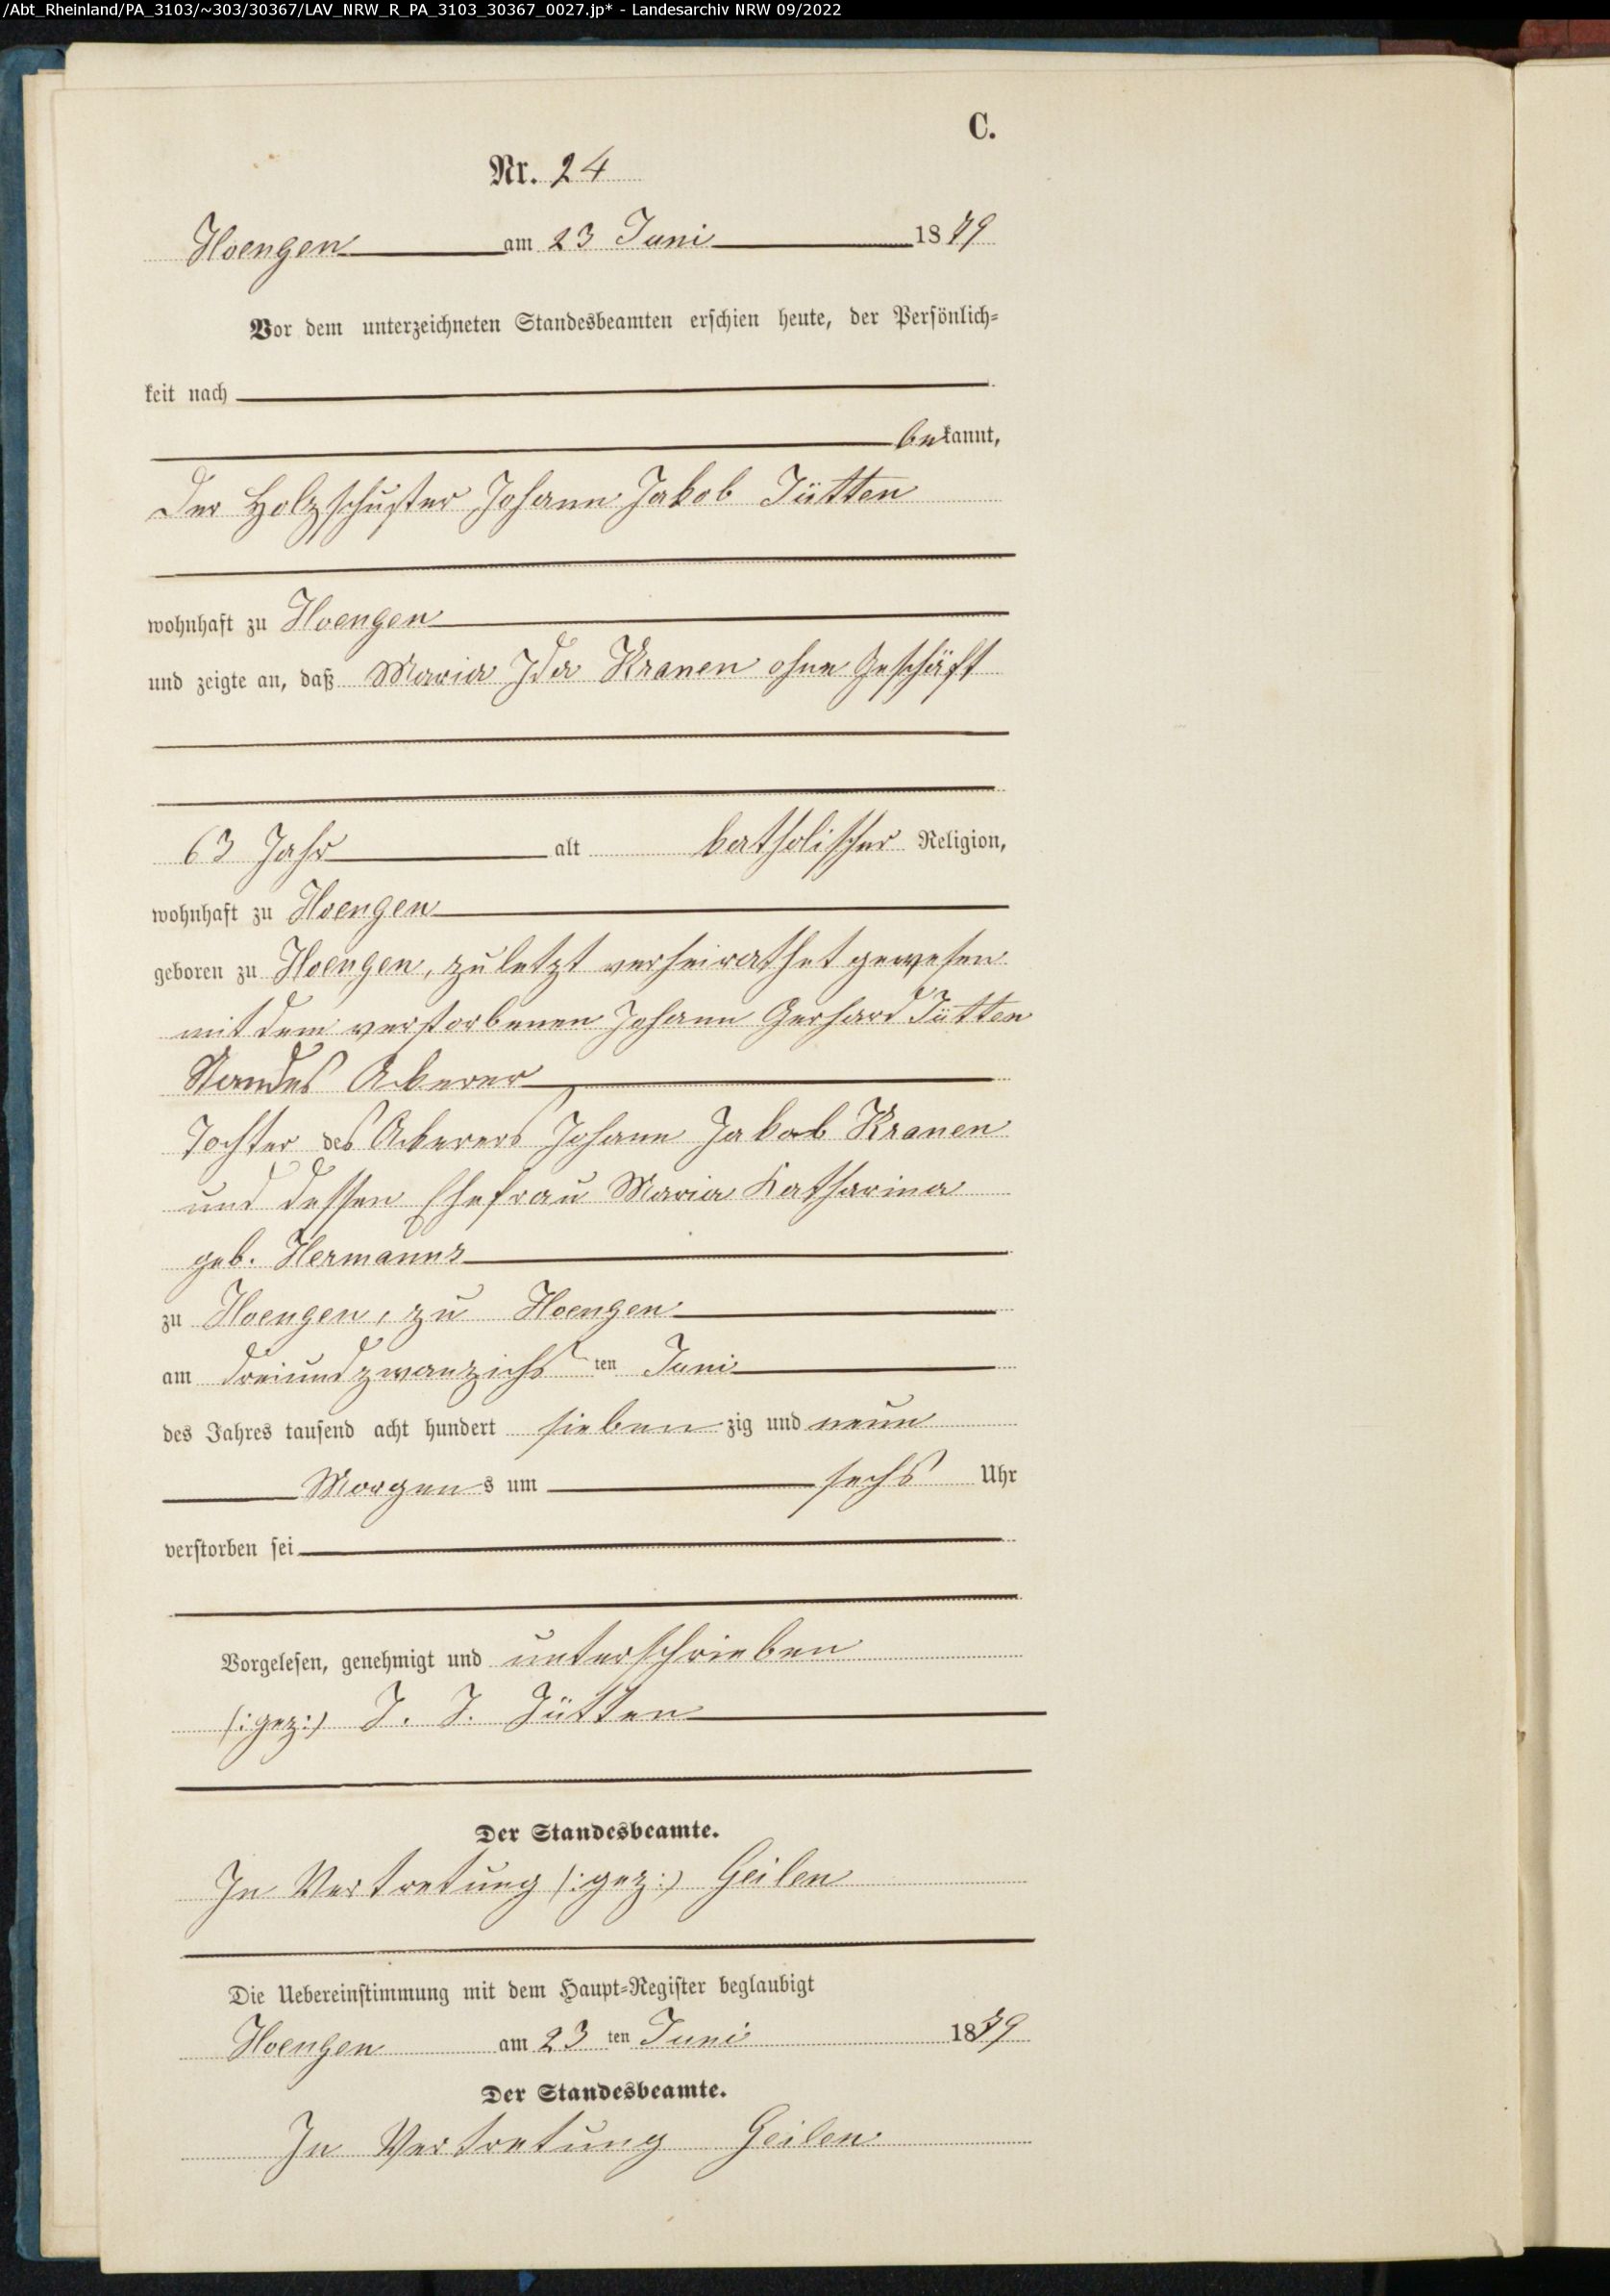 /Abt_Rheinland/PA_3103/~303/30367/LAV_NRW_R_PA_3103_30367_0027.jp* - Landesarchiv NRW 09/2022
C.
Nr. 24
Hoengen am 23 Juni 1879
Vor dem unterzeichneten Standesbeamten erschien heute, der Persönlich-
keit nach
bekannt,
Der Holzschuster Johann Jakob Jütten
wohnhaft zu Hoengen
und zeigte an, daß Maria Ida Kranen ohne Geschäft
63 Jahr alt katholischer Religion,
wohnhaft zu Hoengen
geboren zu Hoengen, zuletzt verheirathet gewesen
mit dem verstorbenen Johann Gerhard Jütten
Standes Ackerer
Tochter des Ackerers Johann Jakob Kranen
und dessen Ehefrau Maria Katharina
geb. Hermanns
zu Hoengen, zu Hoengen
am dreiundzwanzichs ten Juni
des Jahres tausend acht hundert sieben zig und neun
Morgens um sechs Uhr
verstorben sei
Vorgelesen, genehmigt und unterschrieben
(:gez:) J. J. Jütten
Der Standesbeamte.
In Vertretung (:gez:) Geilen
Die Uebereinstimmung mit dem Haupt-Register beglaubigt
Hoengen am 23 ten Juni 1879
Der Standesbeamte.
In Vertretung Geilen